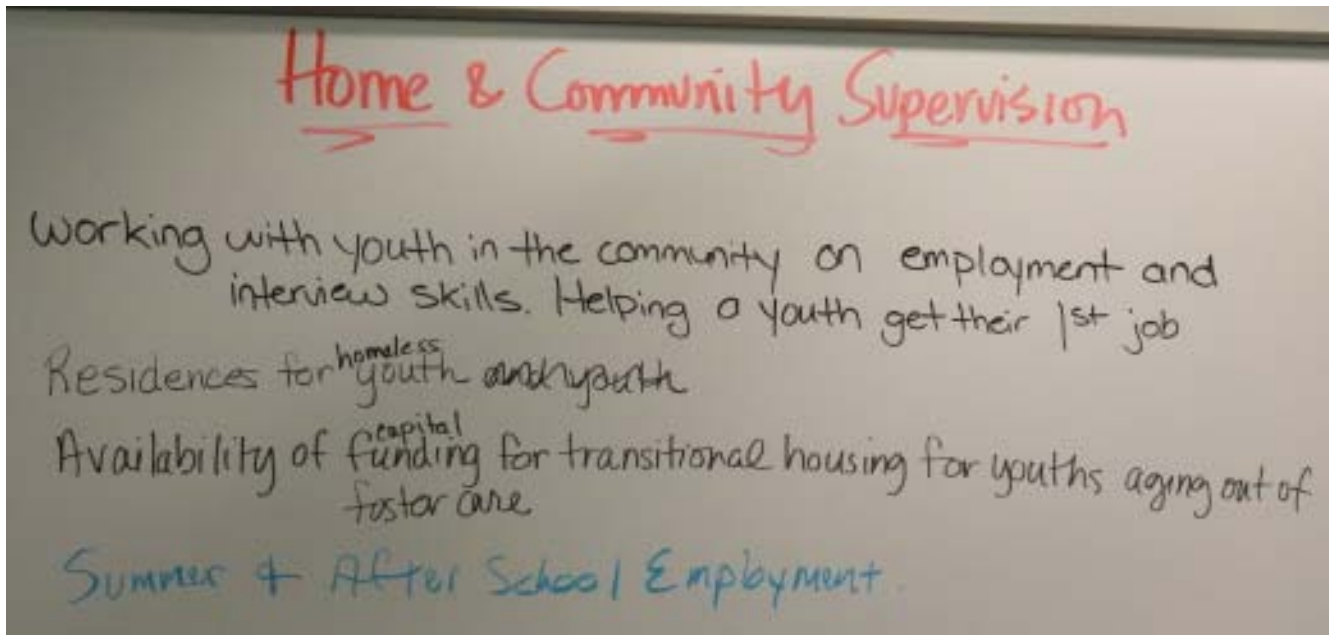 Home & Community Supervision
Working with youth in the community on employment and
interview skills. Helping a youth get their 1st job
Residences for homeless youth and youth
Availability of capital funding for transitional housing for youths aging out of
foster care
Summer & After School Employment.